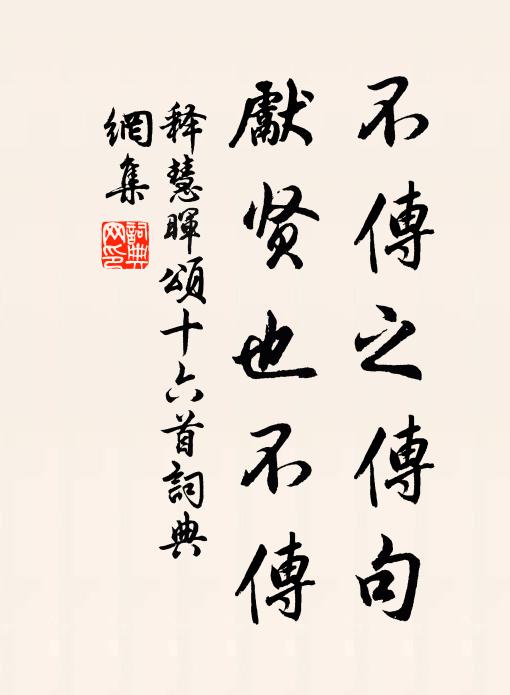 不傳之傳句
獻贤也不傳
释慧暉頌十六首詞典
網集
詞典
网印